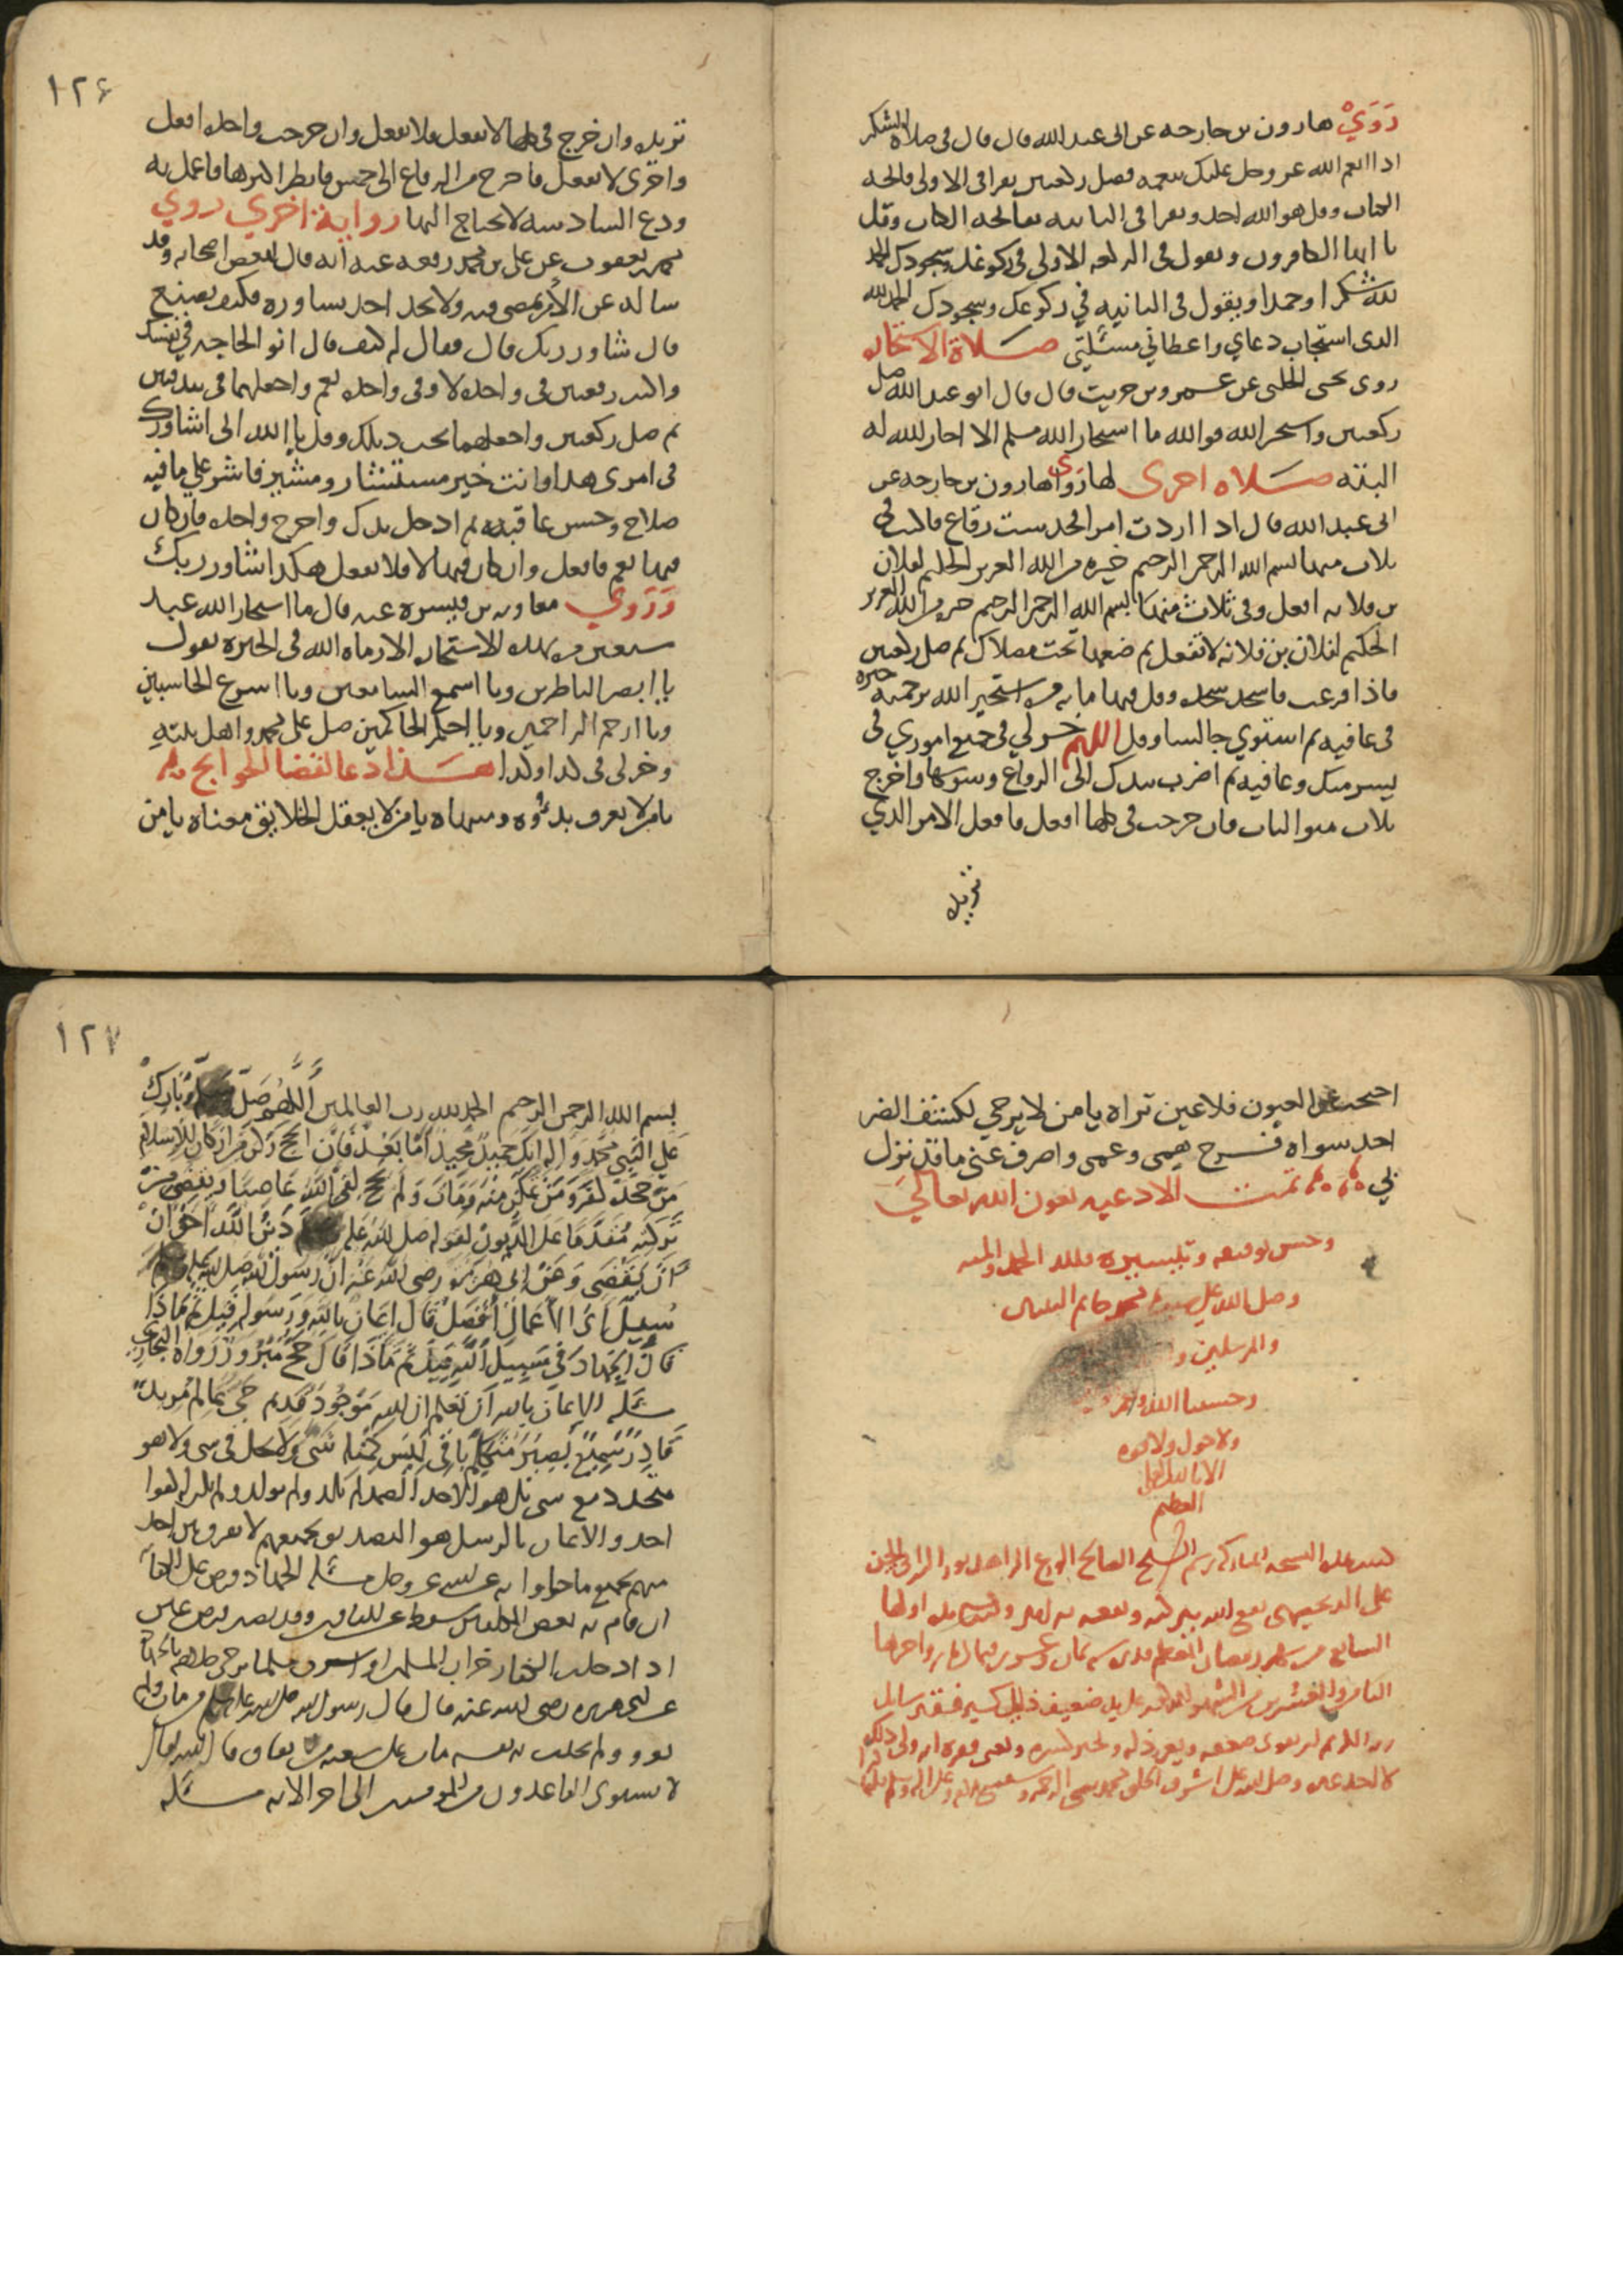 روي هارون بن خارجه عن ابي عبد الله قال قال في صلاة الشكر
اذا انعم الله عز وجل عليك بنعمه فصل ركعتين تقرا في الاولى فاتحه
الكتاب وقل هو الله احد وتقرا في الثانيه بفاتحه الكتاب وقل
يا ايها الكافرون وتقول في الركعه الاولى في ركوعك وسجودك الحمد
لله شكرا وحمدا ويقول في الثانيه في ركوعك وسجودك الحمد لله
الذي استجاب دعاي واعطاني مسئلتي صلاة الاستخاره
روى يحيى الحلبي عن عمرو بن حريث قال قال ابو عبد الله صل
ركعتين واستخر الله فو الله ما استخار الله مسلم الا اخار الله له
البته صلاه اخرى لها روى هارون بن خارجه عن
ابي عبد الله قال اذا اردت امرا فخذ ست رقاع فاكتب في
ثلاث منها بسم الله الرحمن الرحيم خيره من الله العزيز الحكيم لفلان
بن فلانه افعل وفي ثلاث منها بسم الله الرحمن الرحيم خيره من الله العزيز
الحكيم لفلان بن فلانه لا تفعل ثم ضعها تحت مصلاك ثم صل ركعتين
فاذا فرغت فاسجد سجده وقل فيها مايه مره استخير الله برحمته خيره
في عافيه ثم استوي جالسا وقل اللهم خر لي في جميع اموري في
يسر منك وعافيه ثم اضرب بيدك الى الرقاع وشوشها واخرج
ثلاث متواليات فان خرجت في كلها افعل فافعل الامر الذي
تريده
١٢٦
تريده وان خرج في كلها لا تفعل فلا تفعل وان خرجت واحده افعل
واخرى لا تفعل فاخرج من الرقاع الى خمس فانظر اكثرها فاعمل به
ودع السادسه لا تحتاج اليها روايه اخري روي
محمد بن يعقوب عن علي بن محمد رفعه عنه انه قال لبعض اصحابه وقد
ساله عن الامر يمضي فيه ولا يجد احد يساوره فكيف يصنع
قال شاور ربك قال فقال له كيف قال انو الحاجه في نفسك
واكتب رقعتين في واحده لا وفي واحده نعم واجعلهما في بندقتين
ثم صل ركعتين واجعلهما تحت ذيلك وقل يا الله اني اشاورك
في امري هذا وانت خير مستشار ومشير فاشر علي ما فيه
صلاح وحسن عاقبه ثم ادخل يدك واخرج واحده فان كان
فيها نعم فافعل وان كان فيها لا فلا تفعل هكذا شاور ربك
وروي معاويه بن ميسره عنه قال ما استخار الله عبد
سبعين مره بهذه الاستخاره الا رماه الله في الخيره يقول
يا ابصر الناظرين ويا اسمع السامعين ويا اسرع الحاسبين
ويا ارحم الراحمين ويا احكم الحاكمين صل على محمد واهل بيته
وخر لي في كذا وكذا هذا دعا لقضا الحوايج
يا من لا يعرف بدؤه ومنتهاه يا من لا يعقل الخلايق معناه يا من
احتجب عن العيون فلا عين تراه يا من لا يرجى لكشف الضر
احد سواه فرج همي وغمي واصرف عني ما قد نزل
بي تمت الادعيه بعون الله تعالى
وحسن توفيقه وتيسيره فلله الحمد والمنه
وصلى الله على محمد خاتم النبيين
والمرسلين
وحسبنا الله
ولا حول ولا قوه
الا بالله العلي
العظيم
كتبت هذه النسخه المباركه برسم الشيخ الصالح الورع الزاهد
على
السابع من شهر رمضان المعظم
الثامن والعشرين
١٢٧
بسم الله الرحمن الرحيم الحمد لله رب العالمين اللهم صل وسلم وبارك
على النبي محمد واله انك حميد مجيد اما بعد فان الحج ركن من اركان الاسلام
من جحده كفر ومن تمكن منه ومات ولم يحج لقي الله عاصيا ويقضى من
تركته مقدما على الديون لقوله صلى الله عليه وسلم دين الله احق ان
ان يقضى وعن ابي هريره رضي الله عنه ان رسول الله صلى الله عليه وسلم
سيل اي الاعمال افضل قال ايمان بالله ورسوله قيل ثم ماذا
قال الجهاد في سبيل الله قيل ثم ماذا قال حج مبرور رواه البخاري
مسئله الايمان بالله ان تعلم ان الله موجود قديم حي عالم مريد
قادر سميع بصير متكلم باقي ليس كمثله شي ولا يحل في شي ولا هو
متحد مع شي بل هو الاحد الصمد لم يلد ولم يولد ولم يكن له كفوا
احد والايمان بالرسل هو التصديق بجميعهم لا نفرق بين احد
منهم بجميع ما جاوا به عن الله عز وجل مسئله الجهاد فرض على الكفايه
ان قام به بعض المكلفين سقط عن الباقين وقد يصير فرض عين
اذا دخلت الكفار
عن ابي هريره رضي الله عنه قال قال رسول الله صلى الله عليه وسلم من مات ولم
يغزو ولم يحدث به نفسه مات على شعبه من نفاق قال الله تعالى
لا يستوي القاعدون من المومنين الى اخر الايه مسئله